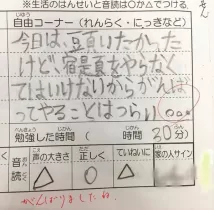 ※生活のはんせいと音読は○か△でつける
自由コーナー（れんらく・にっきなど）
今日は、豆百いたかった
けど、宿題をやらなく
てはいけないからがんば
ってやることはつらい○○。
べんきょう じかん じかん ぷん
勉強した時間（ 時間 30分）
音読 声の大きさ 正しく ていねいに 家の人サイン
△ ○ △
がんばりましたね